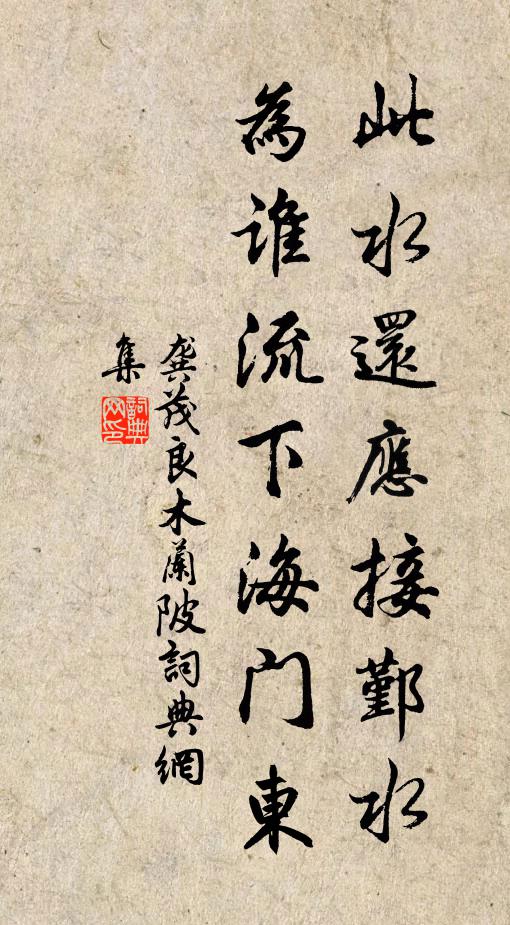 此水還應接鄞水
為谁流下海门東
龔茂良木蘭陂詞典網
集
詞典
网印